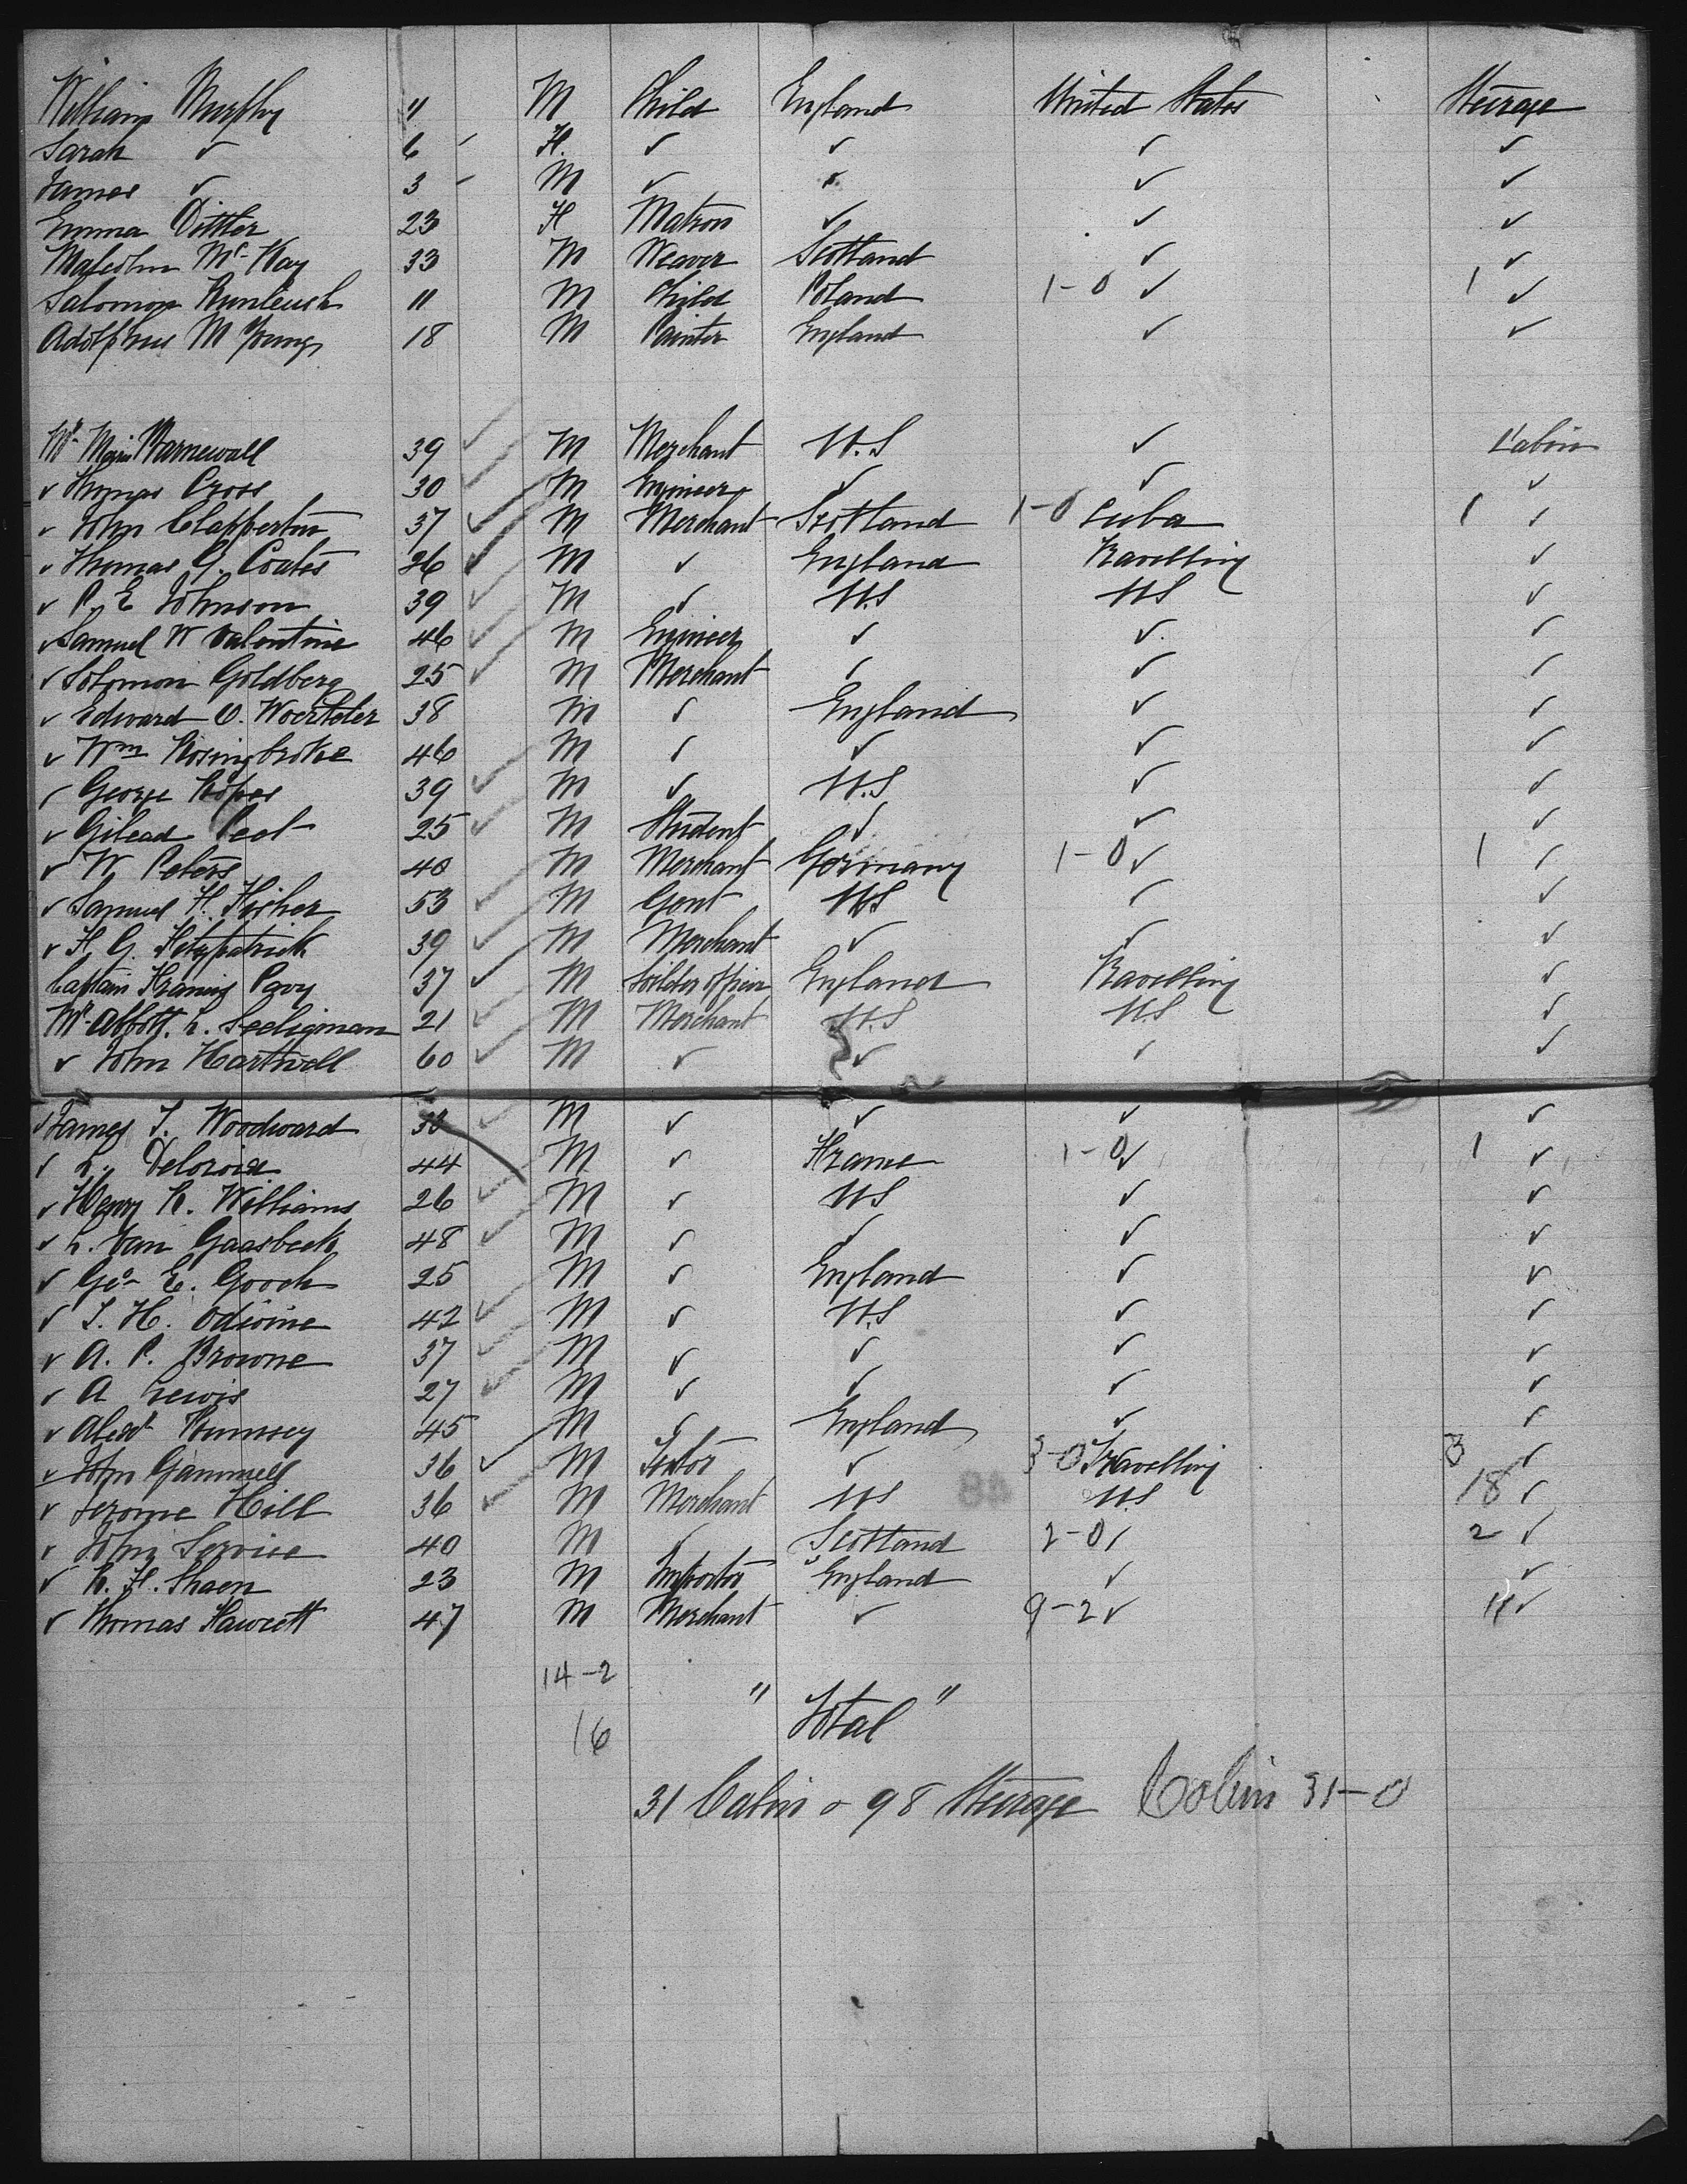 William Murphy 11 M Child England United States Steerage
Sarah ✓ 6 F. ✓ ✓ ✓ ✓
James ✓ 3 M ✓ ✓ ✓ ✓
Emma Dittler 23 F Matron ✓ ✓ ✓
Malcolm Mc-Kay 33 M Weaver Scotland ✓ ✓
Salomon 11 M Child Poland 1-0 ✓ 1 ✓
Adolphus M Young 18 M Painter England ✓ ✓
Mr Barnewall 39 ✓ M Merchant U.S ✓ Cabin
✓ Thomas Cross 30 M Engineer ✓ ✓ ✓
✓ John Clapperton 37 ✓ M Merchant Scotland 1-0 Cuba 1 ✓
✓ Thomas G. Coates 26 ✓ M ✓ England Travelling ✓
✓ P. E Johnson 39 ✓ M ✓ U.S US ✓
✓ Samuel W Valentine 46 ✓ M Engineer ✓ ✓ ✓
✓ Solomon Goldberg 25 ✓ M Merchant ✓ ✓ ✓
✓ Edward O. 38 M ✓ England ✓ ✓
✓ Wm 46 M ✓ ✓ ✓ ✓
✓ George Ropes 39 ✓ M ✓ U.S ✓ ✓
✓ Gilead Peet 25 ✓ M Student ✓ ✓ ✓
✓ W Peters 40 M Merchant Germany 1-0 ✓ 1 ✓
✓ Samuel H. Fisher 53 ✓ M Gent US ✓ ✓
✓ H G. Fitzpatrick 39 ✓ M Merchant ✓ ✓ ✓
Captain Francis Pavy 37 ✓ M England Travelling ✓
Mr Abbott. L. Seeligman 21 ✓ M Merchant U.S U.S ✓
✓ John Hartwell 60 ✓ M ✓ ✓ ✓ ✓
✓ James T. Woodward ✓ M ✓ ✓ ✓ ✓
✓ L. 44 M ✓ France 1-0 ✓ 1 ✓
✓ Henry K. Williams 26 ✓ M ✓ US ✓ ✓
✓ L. Van Gaasbeek 48 ✓ M ✓ ✓ ✓ ✓
✓ Geo E. Gooch 25 M ✓ England ✓ ✓
✓ T. H. Odiorne 42 ✓ M ✓ U.S ✓ ✓
✓ A. P. Browne 37 ✓ M ✓ ✓ ✓ ✓
✓ A Lewis 27 ✓ M ✓ ✓ ✓ ✓
✓ Alexr Rumsey 45 M ✓ England ✓ ✓
✓ John Gammell 36 ✓ M ✓ 3-0 Travelling 3 ✓
✓ Jerome Hill 36 ✓ M Merchant US U.S 18 ✓
✓ John Service 40 M ✓ Scotland 2-0 ✓ 2 ✓
✓ 23 M Importer England ✓ ✓
✓ Thomas Fawcett 47 M Merchant ✓ 9-2 ✓ 11 ✓
14-2
" Total "
16
31 Cabin & 98 Steerage Cabin 31-0